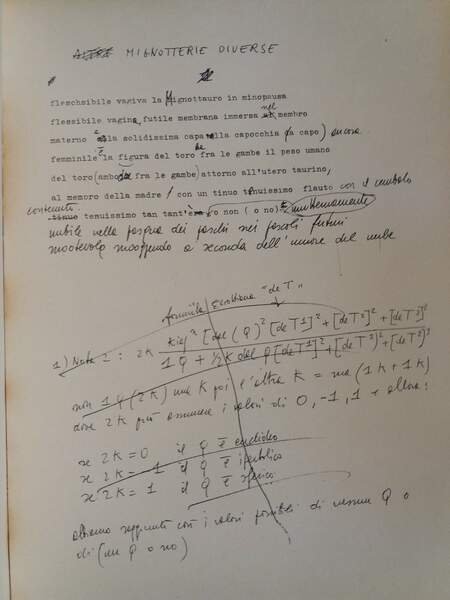 MIGNOTTERIE DIVERSE
fleschsibile vagiva la Mignottauro in minopausa
flessibile vagina, futile membrana immersa nel membro
materno è la solidissima capa nella capocchia (a capo) ancora
femminile è la figura del toro fra le gambe il peso umano
del toro (ambo fra le gambe) attorno all'utero taurino,
al memoro della madre / con un tinuo tenuissimo flauto con il cembalo
contenuti
tinuo tenuissimo tan tant'è o non ( o no) ininterrottamente
nubile nella pasqua dei paschi nei pascoli futuri
a seconda dell'umore del nube
formula "de T"
1) Note 2: 2K
1 φ + ½ K del φ [de T¹]² + [de T²]² + [de T³]²
non 1 φ (2K) ma K poi l'altra K = ma (1K + 1K)
dove 2K può assumere i valori di 0, -1, 1 e allora:
se 2K = 0 il φ è euclideo
se 2K = -1 il φ è iperbolico
se 2K = 1 il φ è sferico
abbiamo raggiunto con i valori possibili di nessun φ o
di (un φ o no)